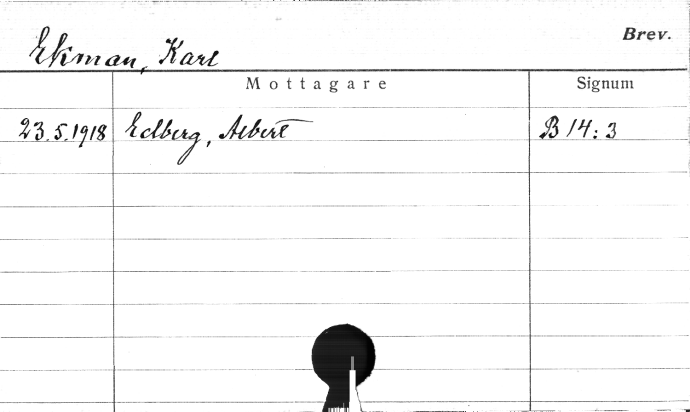 Brev.
Ekman, Karl
Mottagare Signum
23.5.1918 Edberg, Albert B 14:3